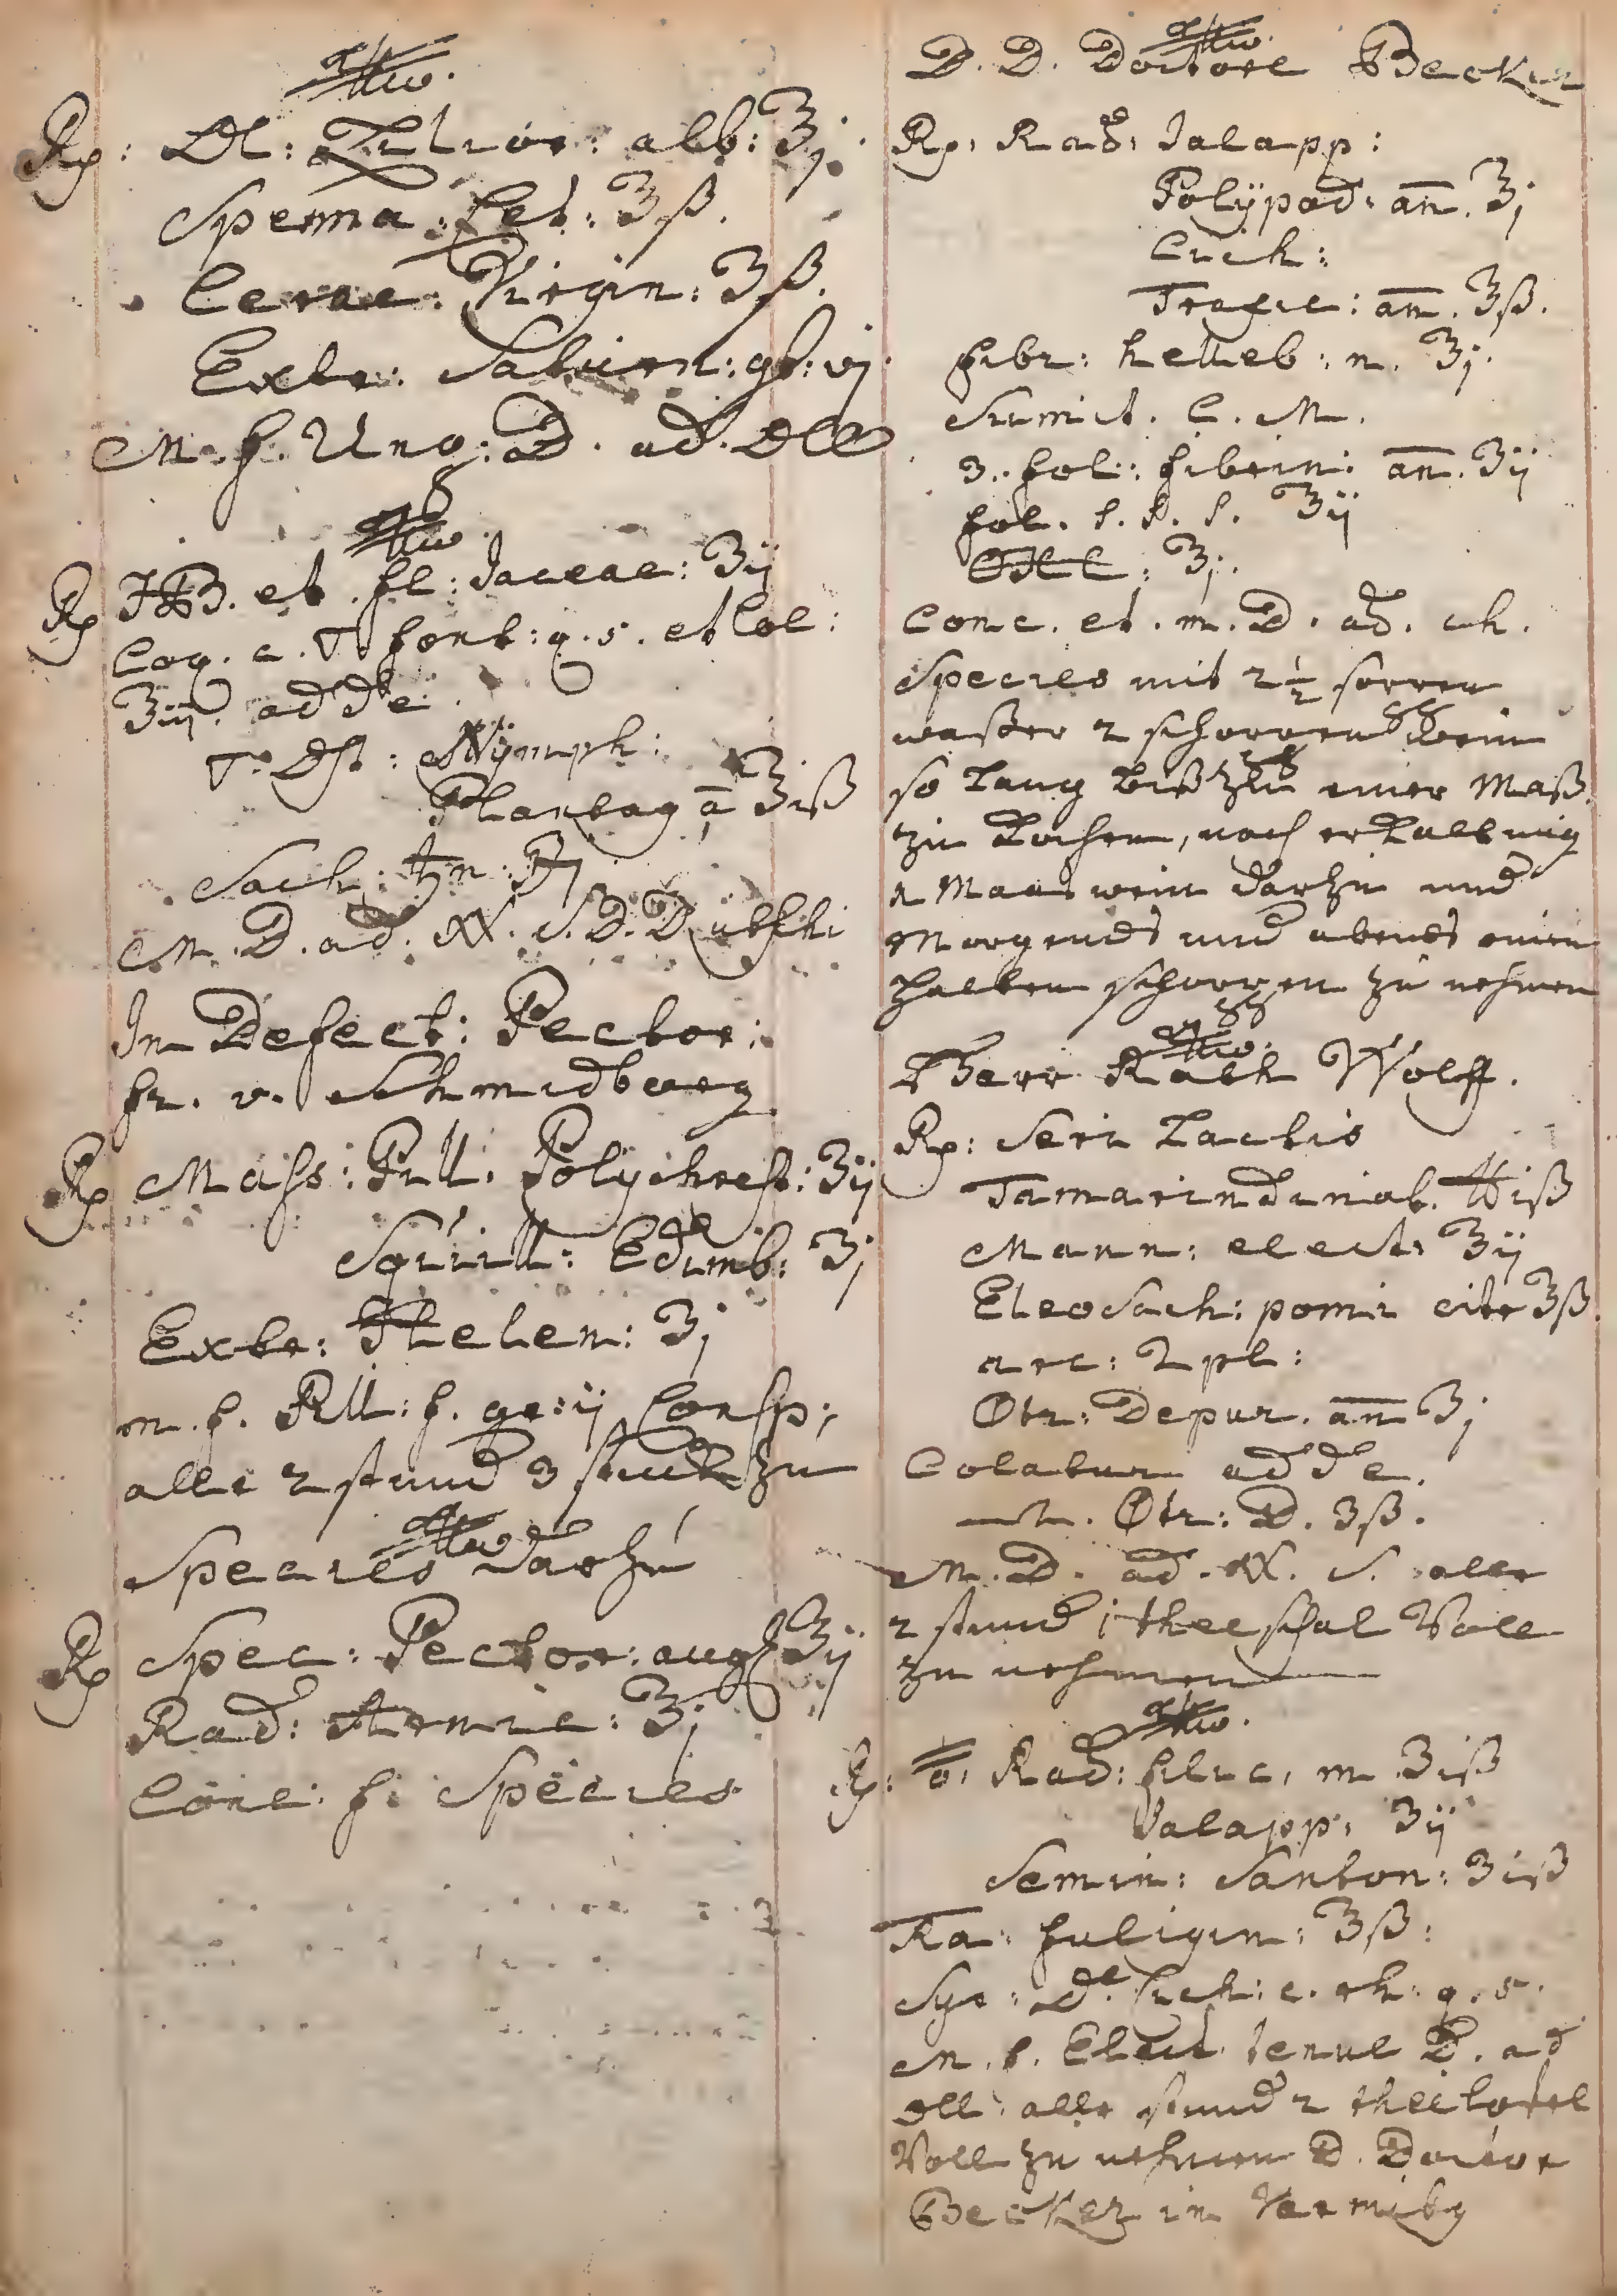 Rp: Ol: Lilior: alb: ℥j.
Sperma: Cet: ℥ß.
Cerae: Virgin: ℥ß.
Extr: Saturn: gt: vj.
M. f. Ung: D. ad. Oll
Rp HB. et. fl: Jaceae: ℥ij
Coq. c. ▽ font: q. s. et Col:
adde.
▽. Dst: Nÿmph:
Plantag ā ℥iß
Sach:
M. D. ad. S. D. D.
In Defect: Pector:
fr. v. Schmidburg
Rp Mass: Pill. Polychrest: ʒij
Squill: Edimb: ʒj
Extr: Helen: ʒj
m. f. Pill: f. gr: ij Consp:
alle 2 stund 3 stuck zu
Species darzu
Rp Spec: Pector: aug ℥ij
Rad: Arnic: ʒj
Conc: f. Species
D. D. Doctore Becker
Rp. Rad: Jalapp:
Polÿpod: an. ℥j
Cich:
an. ℥ß.
fibr: helleb: n. ʒj.
Sumit. C. M.
3. fol: fibrin: an. ʒij
fol. S. S. S. ʒij
℥j.
Conc. et. m. D. ad. ch.
Species mit 2 1/2 schoppen
waßer 2 schoppen wein
so lang biß zu einer Maß
zu kochen, nach erkaltung
1 Maas wein darzu und
Morgends und abends einen
halben schoppen zu nehmen
Herr Rath Wolff.
Rp: Seri Lactis
Tamarindinat. ℔iß
Mann: elect: ℥ij
Eleosach: pomi citr ℥ß.
arc: Dupl:
Θtr: Depur. an ʒj
Colatur adde.
Θtr: D. ʒß.
M. D. ad. S. alle
2 stund 1 thee schal Voll
zu nehmen
Rp: Rad: filic, m ℥iß
Jalapp: ʒij
Semin: Santon: ʒiß
Ra: fuligin: ℥ß:
Syr: De Cich: c. rh: q. s.
M. f. Elect tenue D. ad
oll: alle stund 2 thee loffel
Voll zu nehmen D. Doctor
Becker in